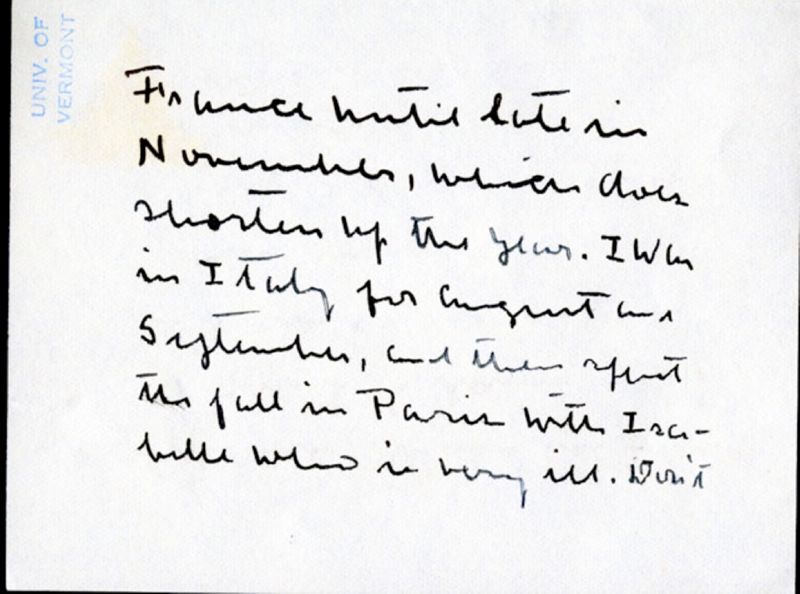 UNIV. OF
VERMONT
France until late in
November, which does
shorten up the year. I was
in Italy for August and
September, and then spent
the fall in Paris with Isa-
belle who is very ill. Don't